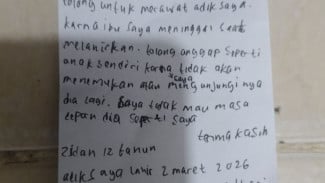 tolong untuk merawat adik saya.
karna ibu saya meninggal saat
melahirkan. tolong anggap seperti
anak sendiri karna tidak akan
menemukan atau saya mengunjungi nya
dia lagi. Saya tidak mau masa
depan dia seperti saya
terima kasih
Zidan 12 tahun
adik saya lahir 2 maret 2026